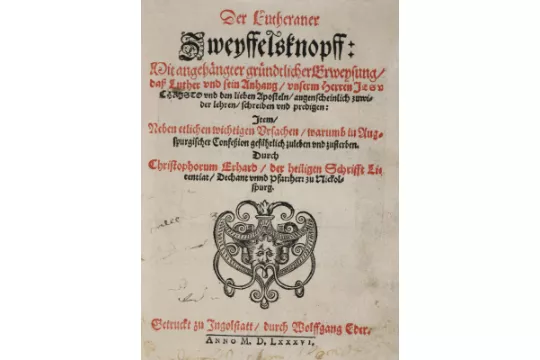 Der Lutheraner
Zweyffelsknopff:
Mit angehängter gründtlicher Erweysung/
daß Luther vnd sein Anhang/ vnserm Herren JESV
CHRISTO vnd den lieben Aposteln/ augenscheinlich zuwi-
der lehren/ schreiben vnd predigen:
Item/
Neben etlichen wichtigen Vrsachen/ warumb in Aug-
spurgischer Confession gefährlich zuleben vnd zusterben.
Durch
Christophorum Erhard/ der heiligen Schrifft Li-
centiat/ Dechant vnnd Pfarrherr zu Nickol-
spurg.
Getruckt zu Ingolstatt/ durch Wolffgang Eder/
ANNO M. D. LXXXVI.